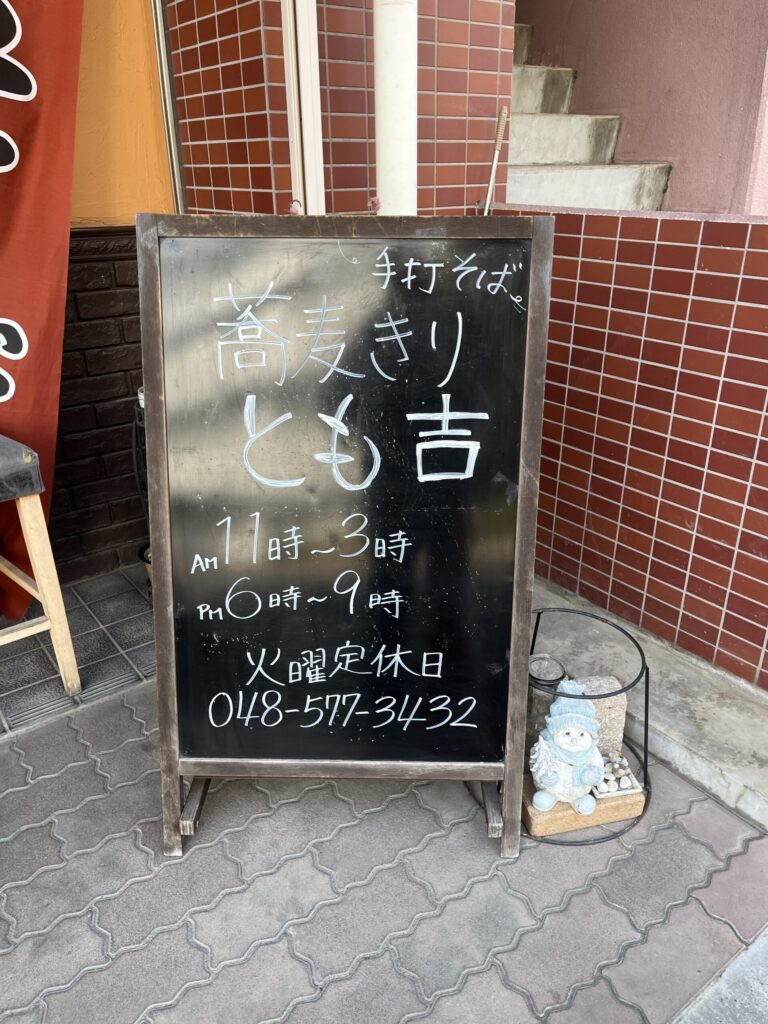 手打そば
蕎麦きり
とも吉
AM11時~3時
PM6時~9時
火曜定休日
048-577-3432